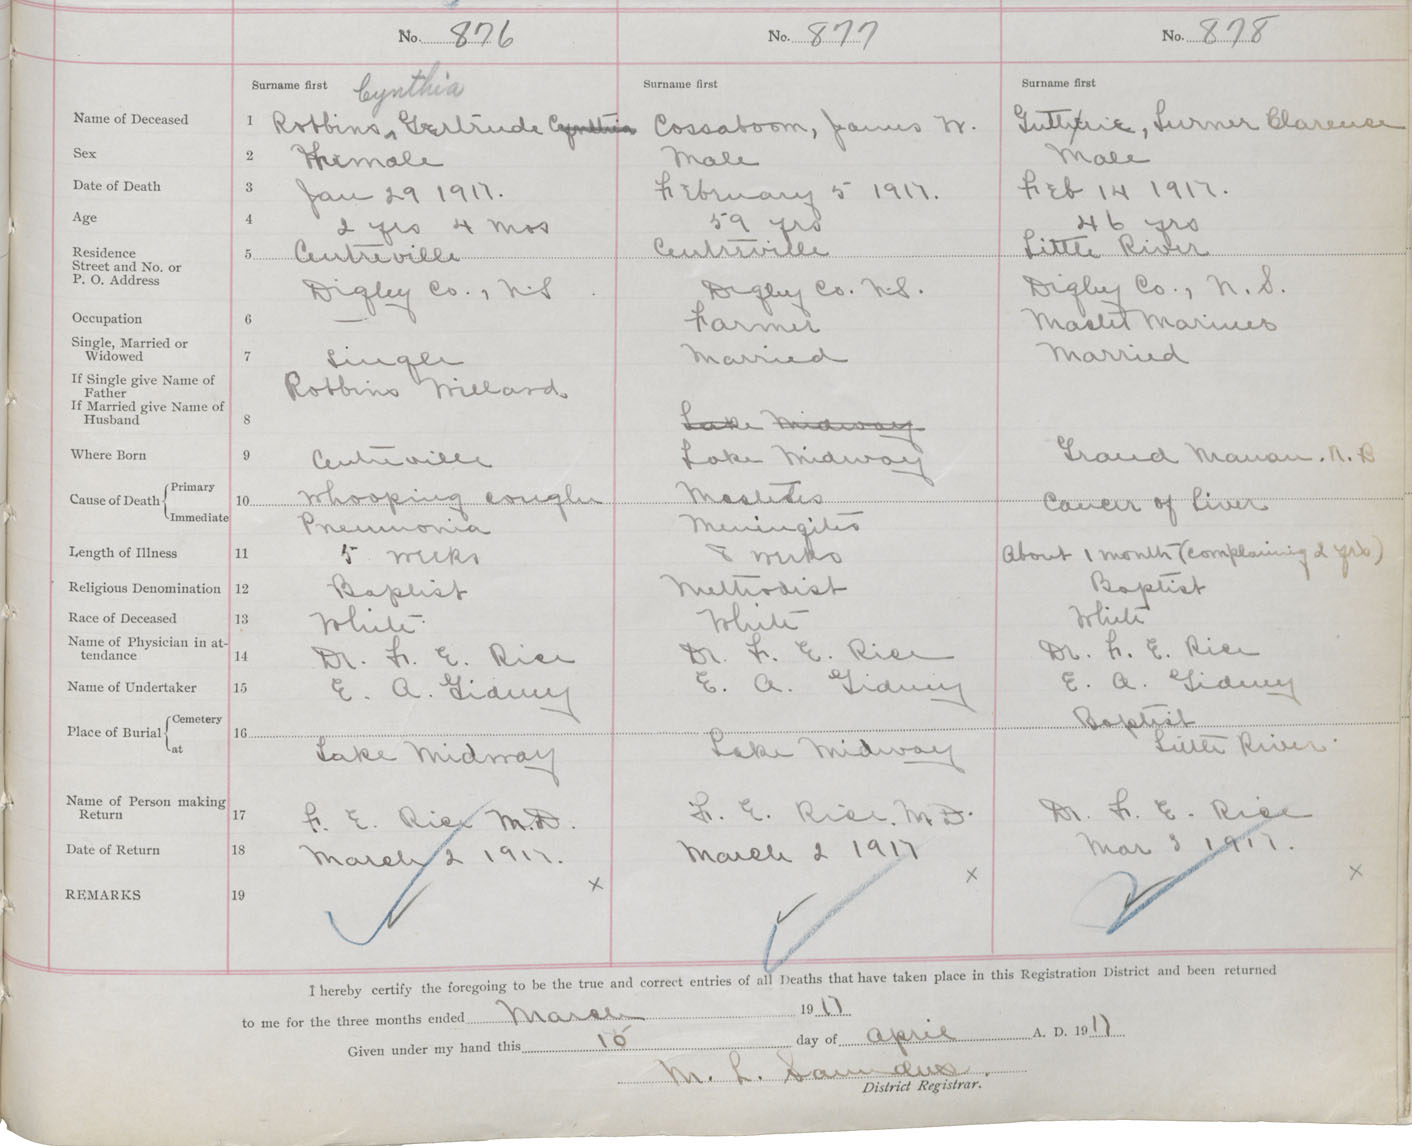 No. 876 No. 877 No. 878
Surname first Cynthia Surname first Surname first
Name of Deceased 1 Robbins, Gertrude Cynthia Cossaboom, James W. Guthrie, Turner Clarence
Sex 2 Female Male Male
Date of Death 3 Jan 29 1917. February 5 1917. Feb 14 1917.
Age 4 2 yrs 4 mos 59 yrs 46 yrs
Residence 5 Centreville Centreville Little River
Street and No. or
P. O. Address Digby Co., N.S Digby Co. N.S. Digby Co., N.S.
Occupation 6 — Farmer Master Mariner
Single, Married or
Widowed 7 Single Married Married
If Single give Name of
Father Robbins Willard
If Married give Name of
Husband 8 Lake Midway
Where Born 9 Centreville Lake Midway Grand Manan. N.B
Cause of Death Primary 10 Whooping cough Cancer of Liver
Immediate Pneumonia Meningitis
Length of Illness 11 5 weeks 8 weeks About 1 month (complaining 2 yrs)
Religious Denomination 12 Baptist Methodist Baptist
Race of Deceased 13 White White White
Name of Physician in at-
tendance 14 Dr. F. E. Rice Dr. F. E. Rice Dr. F. E. Rice
Name of Undertaker 15 E. A. Gidney E. A. Gidney E. A. Gidney
Place of Burial Cemetery 16 Baptist
at Lake Midway Lake Midway Little River.
Name of Person making
Return 17 F. E. Rice M.D. F. E. Rice. M.D. Dr. F. E. Rice
Date of Return 18 March 2 1917. March 2 1917 Mar 3 1917.
REMARKS 19 x x x
I hereby certify the foregoing to be the true and correct entries of all Deaths that have taken place in this Registration District and been returned
to me for the three months ended March 1917
Given under my hand this 10 day of April A. D. 1917
M. L. Saunders.
District Registrar.